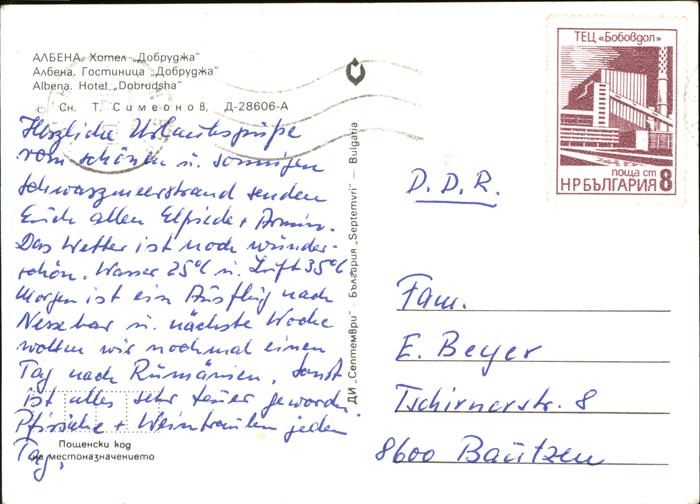 АЛБЕНА. Хотел „Добруджа“
Албена. Гостиница „Добруджа“
Albena. Hotel „Dobrudsha“
© Сн. Т. Симеонов, Д-28606-А
Herzliche Urlaubsgrüße
vom schönen u. sonnigen
Schwarzmeerstrand senden
Euch allen Elfriede + Armin.
Das Wetter ist noch wunder-
schön. Wasser 25°C u. Luft 35°C
Morgen ist ein Ausflug nach
Nessebar u. nächste Woche
wollen wir nochmal einen
Tag nach Rumänien. Sonst
ist alles sehr teuer geworden.
Pfirsiche + Weintrauben jeden
Tag.
Пощенски код
на местоназначението
ДИ „Септември“ – България „Septemvri“ – Bulgaria
ТЕЦ «Бобовдол»
поща ст
НРБЪЛГАРИЯ 8
D.D.R.
Fam.
E. Beyer
Tschirnerstr. 8
8600 Bautzen